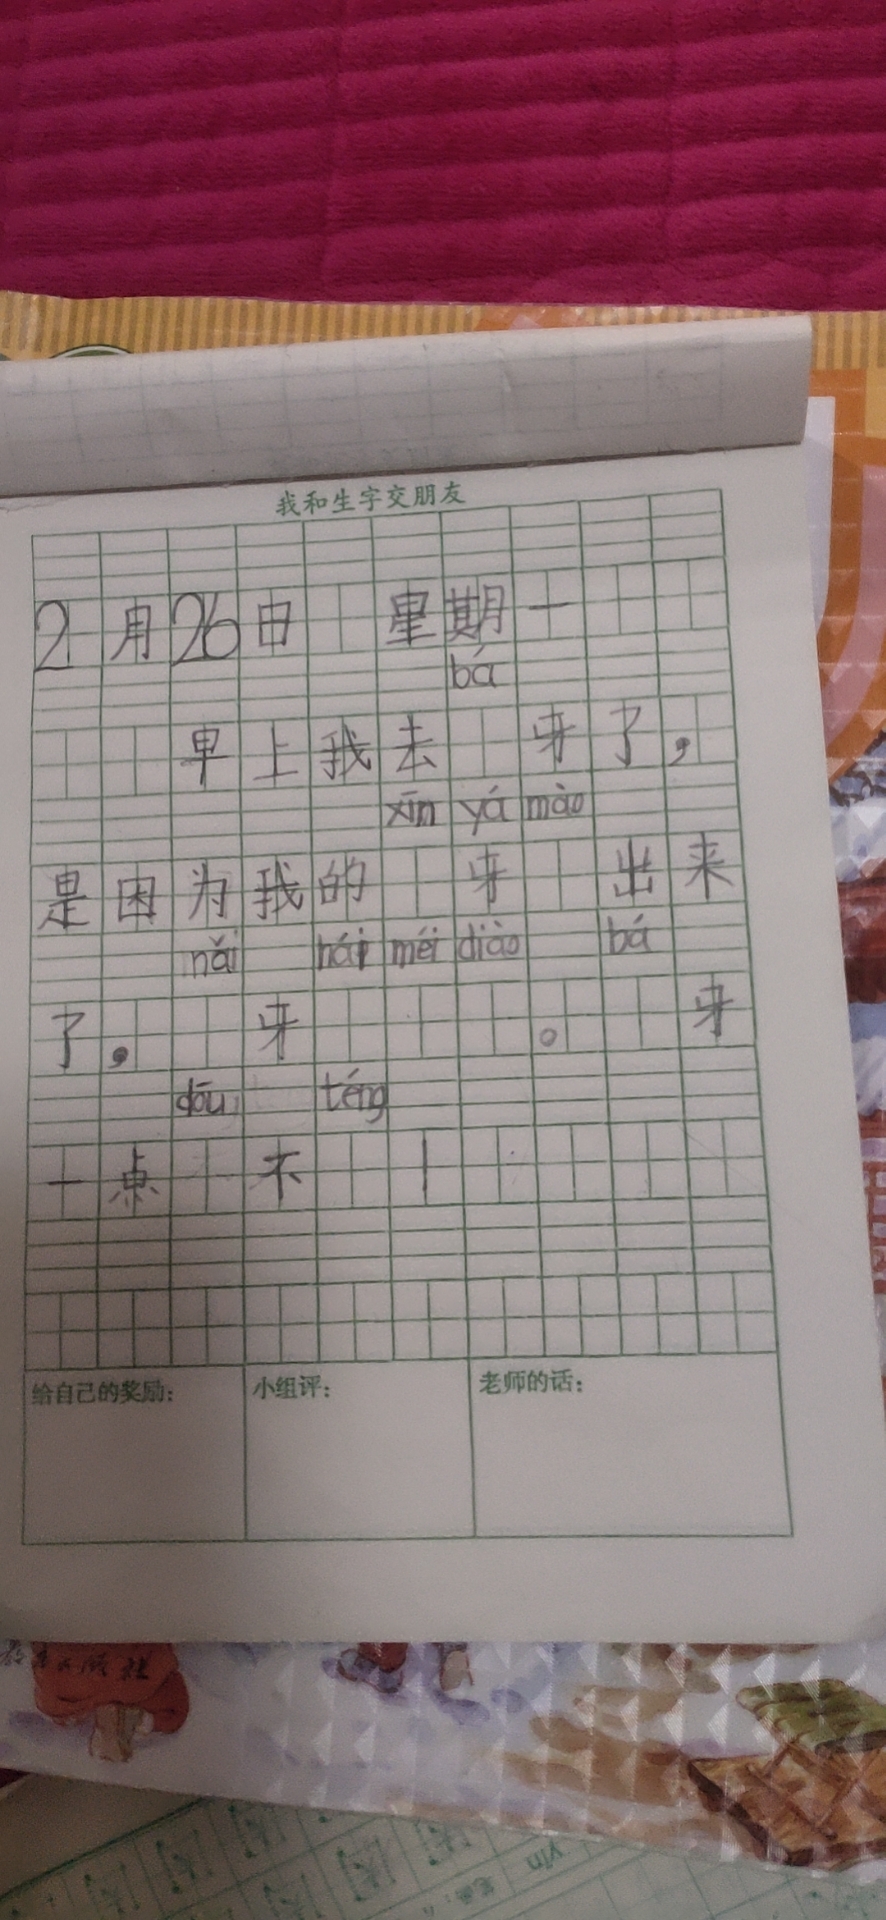 我和生字交朋友
2月26日 星期一
bá
早上我去 牙了，
xīn yá mào
是因为我的 牙 出来
nǎi hái méi diào bá
了， 牙 。 牙
dōu téng
一点 不 ！
给自己的奖励： 小组评： 老师的话：